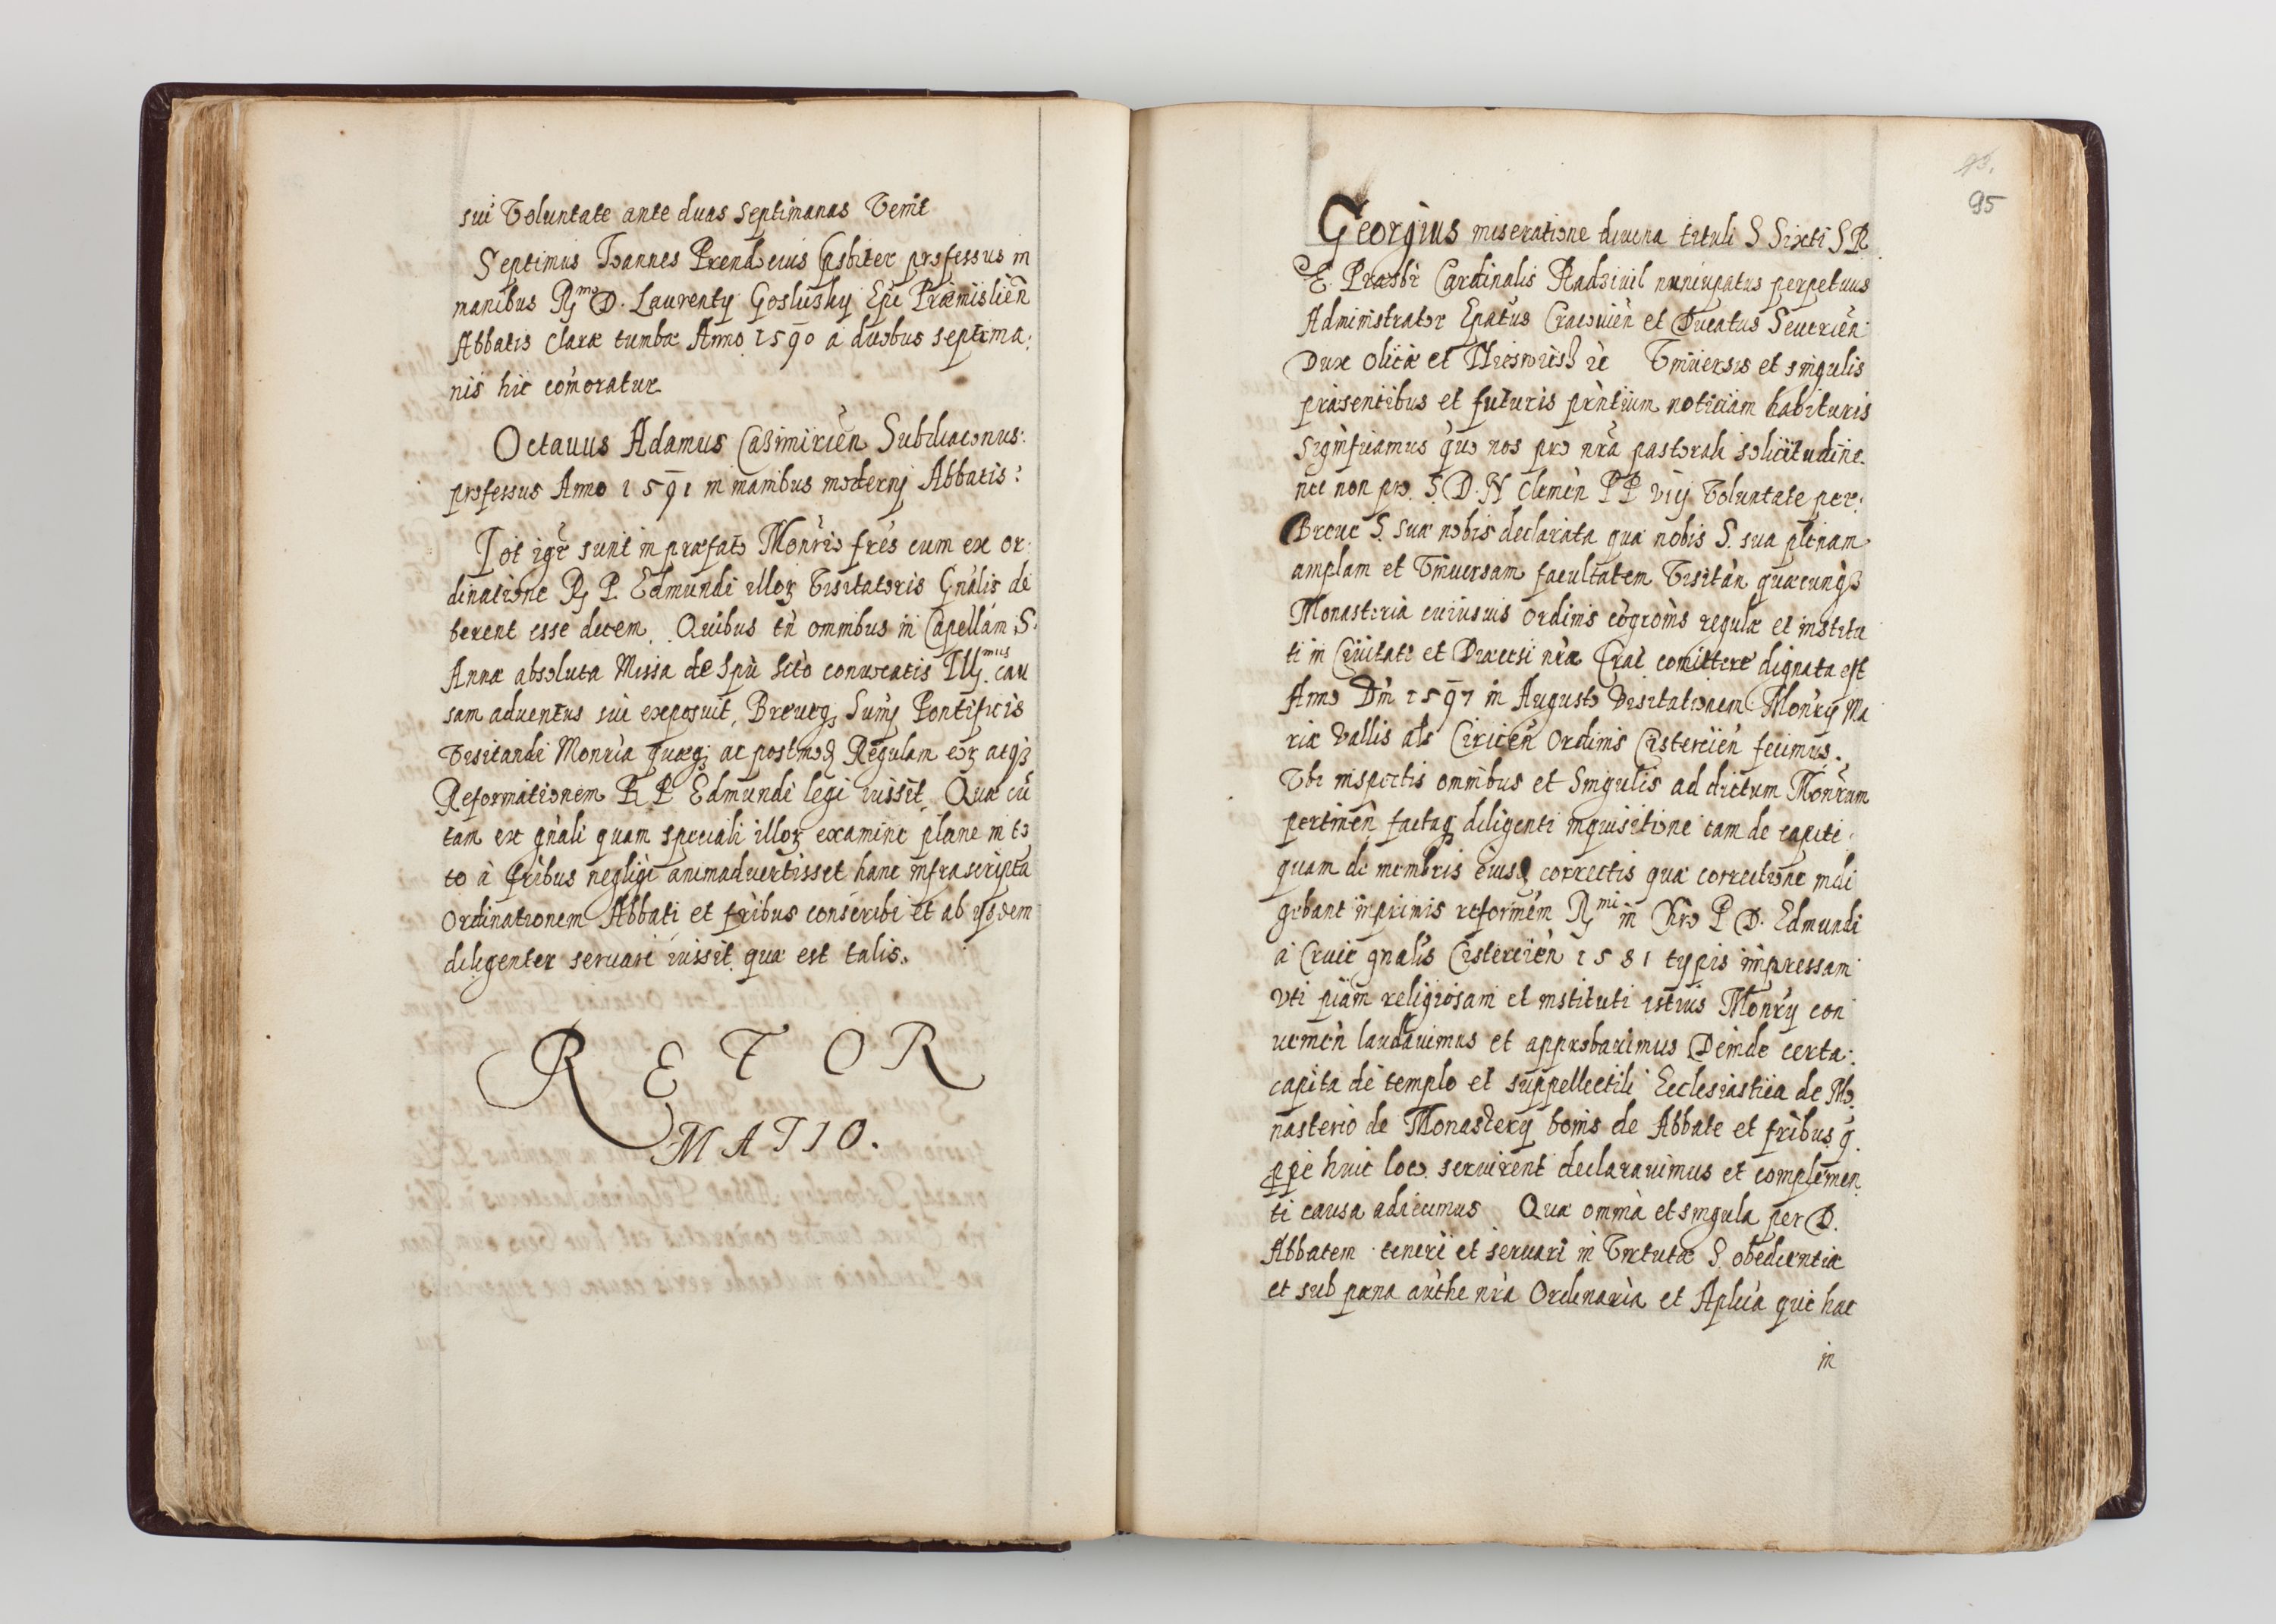 sui Voluntate ante duas septimanas Venit
Septimus Ioannes Prendecius Psbiter professus in
manibus R^mo D. Laurentÿ Goslusky Epi Præmislien
Abbatis Claræ tumbæ Anno 1590 a duobus septima:
nis hic com̃oratur
Octauus Adamus Casimirien Subdiaconus:
professus Anno 1591 in manibus modernj Abbatis:
Tot igr sunt in præfato Monrio frẽs cum ex or
dinatione R P Edmundi illoꝝ Visitatoris Gnalis de
berent esse decem. Quibus tñ omnibus in Capellam S.
Annæ absoluta Missa de Spũ Scto conuocatis Ill^mus cau
sam aduentus sui exposuit, Breueq Sum̃j Pontificis
Visitandi Monria quæq ac postmod Regulam eoꝝ atqꝫ
Reformationem R P Edmundi legi iussit. Quæ cũ
tam ex gnali quam speciali illoꝝ examine plane in to
to à fribus negligi animaduertisset hanc infrascripta
Ordinationem Abbati et fribus conscribi et ab ysdem
diligenter seruari iussit quæ est talis.
R E F O R
MATIO.
95
Georgius miseratione diuina tituli S Sixti S R
E. Præsbr Cardinalis Radziuil nuncupatus perpetuus
Administrator Epatus Cracouien et Ducatus Seuerien
Dux Olicæ et Nieswiesh &c Vniuersis et singulis
præsentibus et futuris præntium noticiam habituris
Significamus quo nos pro nra pastorali solicitudine
nec non pro S. D. N Clemen PP viij Voluntate per
Breue S. suæ nobis declarata qua nobis S. sua plenam
amplam et Vniuersam facultatem Visitan quæcunqꝫ
Monasteria cuiusuis ordinis cogrois regulæ et institu
ti in Ciuitate et Diæcesi nra Crac com̃ittere dignata est
Anno Dni 1597 in Augusto Visitationem Monrÿ Ma
riæ Vallis als Ciricen Ordinis Cistercien fecimus.
Vbi inspectis omnibus et Singulis ad dictum Monrium
pertinen factaq diligenti inquisitione tam de capite
quam de membris eiusd correctis quæ correctione indi
gebant inprimis reformem R^mi in Chro P D. Edmundi
a Cruce gnalis Cistercien 1581 typis impressam
vti piam religiosam et instituti istius Monrÿ con
uenien laudauimus et approbauimus Deinde certa
capita de templo et suppellectili Ecclesiastica de Mo
nasterio de Monasterÿ bonis de Abbate et fribus q
ppe huic loco seruirent declarauimus et complemen
ti causa adiecimus Quæ omnia et singula per D.
Abbatem teneri et seruari in Virtute S obedientiæ
et sub pæna authe nra Ordinaria et Aplica qui hac
in